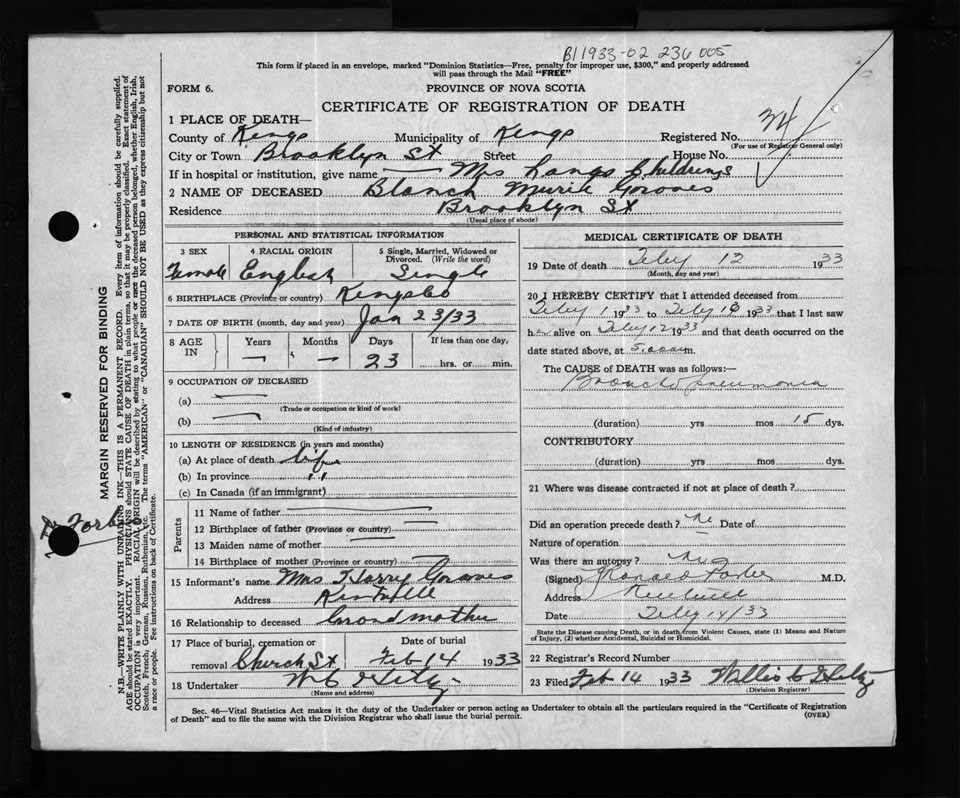 B11933-02 236 005
This form if placed in an envelope, marked "Dominion Statistics—Free, penalty for improper use, $300," and properly addressed
will pass through the Mail "FREE"
FORM 6.
PROVINCE OF NOVA SCOTIA
CERTIFICATE OF REGISTRATION OF DEATH
34
1 PLACE OF DEATH—
County of Kings Municipality of Kings Registered No.
(For use of Registrar General only)
City or Town Brooklyn St Street House No.
If in hospital or institution, give name Mrs Langs Childrings
2 NAME OF DECEASED Blanch Murile Graves
Residence Brooklyn St
(Usual place of abode)
PERSONAL AND STATISTICAL INFORMATION
3 SEX 4 RACIAL ORIGIN 5 Single, Married, Widowed or Divorced. (Write the word)
Female English Single
6 BIRTHPLACE (Province or country) Kings Co
7 DATE OF BIRTH (month, day and year) Jan 23/33
8 AGE IN Years Months Days If less than one day,
— — 23 hrs. or min.
9 OCCUPATION OF DECEASED
(a) —
(Trade or occupation or kind of work)
(b) —
(Kind of industry)
10 LENGTH OF RESIDENCE (in years and months)
(a) At place of death life
(b) In province " "
(c) In Canada (if an immigrant)
Parents
11 Name of father —
12 Birthplace of father (Province or country) —
13 Maiden name of mother —
14 Birthplace of mother (Province or country) —
15 Informant's name Mrs Harry Graves
Address Kentville
16 Relationship to deceased Grandmother
17 Place of burial, cremation or removal Church St. Date of burial Feb 14 1933
18 Undertaker W C
(Name and address)
MEDICAL CERTIFICATE OF DEATH
19 Date of death Feby 12 1933
(Month, day and year)
20 I HEREBY CERTIFY that I attended deceased from
Feby 1 1933 to Feby 12 1933 that I last saw
h alive on Feby 12 1933 and that death occurred on
date stated above, at 5.00 a m.
The CAUSE of DEATH was as follows:—
Broncho pneumonia
(duration) yrs mos 15 dys.
CONTRIBUTORY
(duration) yrs mos dys.
21 Where was disease contracted if not at place of death?
Did an operation precede death? no Date of
Nature of operation —
Was there an autopsy? no
(Signed) Forbes M.D.
Address
Date Feby 14/33
State the Disease causing Death, or in death from Violent Causes, state (1) Means and Nature
of Injury, (2) whether Accidental, Suicidal or Homicidal.
22 Registrar's Record Number
23 Filed Feb 14 1933 Willis C
(Division Registrar)
Sec. 46—Vital Statistics Act makes it the duty of the Undertaker or person acting as Undertaker to obtain all the particulars required in the "Certificate of Registration
of Death" and to file the same with the Division Registrar who shall issue the burial permit.
(OVER)
MARGIN RESERVED FOR BINDING
N.B.—WRITE PLAINLY WITH UNFADING INK—THIS IS A PERMANENT RECORD. Every item of information should be carefully supplied.
AGE should be stated EXACTLY. PHYSICIANS should STATE CAUSE OF DEATH in plain terms, so that it may be properly classified. Exact statement of
OCCUPATION is very important. RACIAL ORIGIN will be described by stating to what people or race the deceased person belonged, whether English, Irish,
Scotch, French, German, Russian, Ruthenian, etc. The terms "AMERICAN" or "CANADIAN" SHOULD NOT BE USED as they express citizenship but not
a race or people. See instructions on back of Certificate.
Forbes